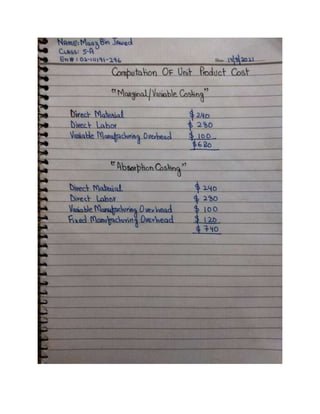 NAME: Maaz Bin Jawed
CLASS: 5-A
En#: 02-111191-296
Date: 14/9/2021
Computation OF Unit Product Cost
"Marginal/Variable Costing"
Direct Material $240
Direct Labor $280
Variable Manufacturing Overhead $100
$680
"Absorption Costing"
Direct Material $240
Direct Labor $280
Variable Manufacturing Overhead $100
Fixed Manufacturing Overhead $120
$740